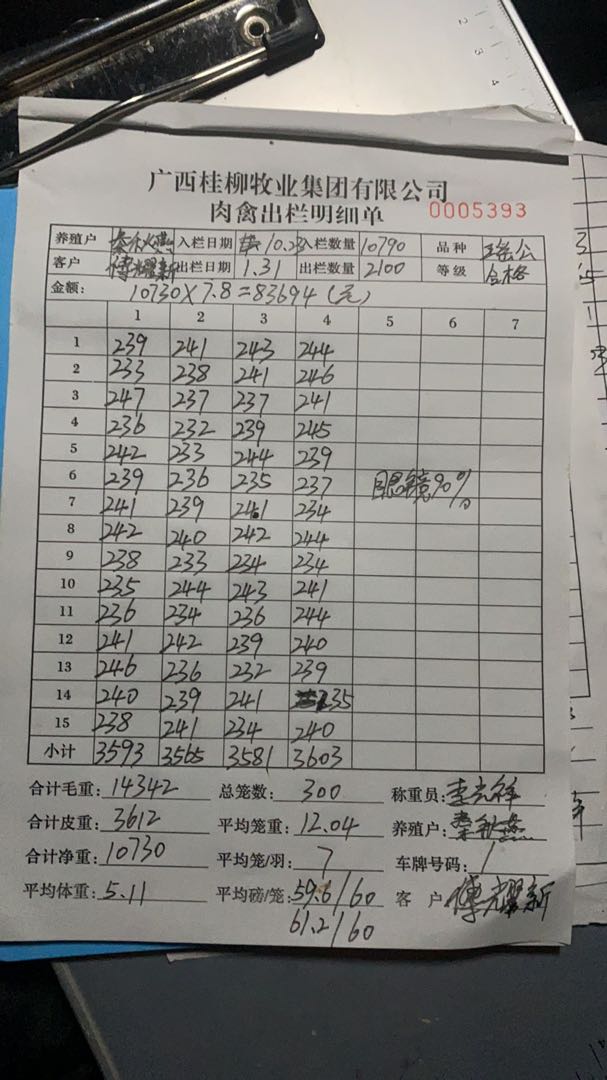 广西桂柳牧业集团有限公司
肉禽出栏明细单 0005393
养殖户 秦秋燕 入栏日期 10.23 入栏数量 10790 品种 瑶公
客户 傅耀新 出栏日期 1.31 出栏数量 2100 等级 合格
金额: 10730×7.8=83694(元)
1 2 3 4 5 6 7
1 239 241 243 244
2 233 238 241 246
3 247 237 237 241
4 236 232 239 245
5 242 233 244 239
6 239 236 235 237 眼镜90%
7 241 239 241 234
8 242 240 242 244
9 238 233 234 234
10 235 244 243 241
11 236 234 236 244
12 241 242 239 240
13 246 236 232 239
14 240 239 241 235
15 238 241 234 240
小计 3593 3565 3581 3603
合计毛重: 14342 总笼数: 300 称重员: 李克祥
合计皮重: 3612 平均笼重: 12.04 养殖户: 秦秋燕
合计净重: 10730 平均笼/羽: 7 车牌号码: /
平均体重: 5.11 平均磅/笼: 59.6/60 客户 傅耀新
61.2/60